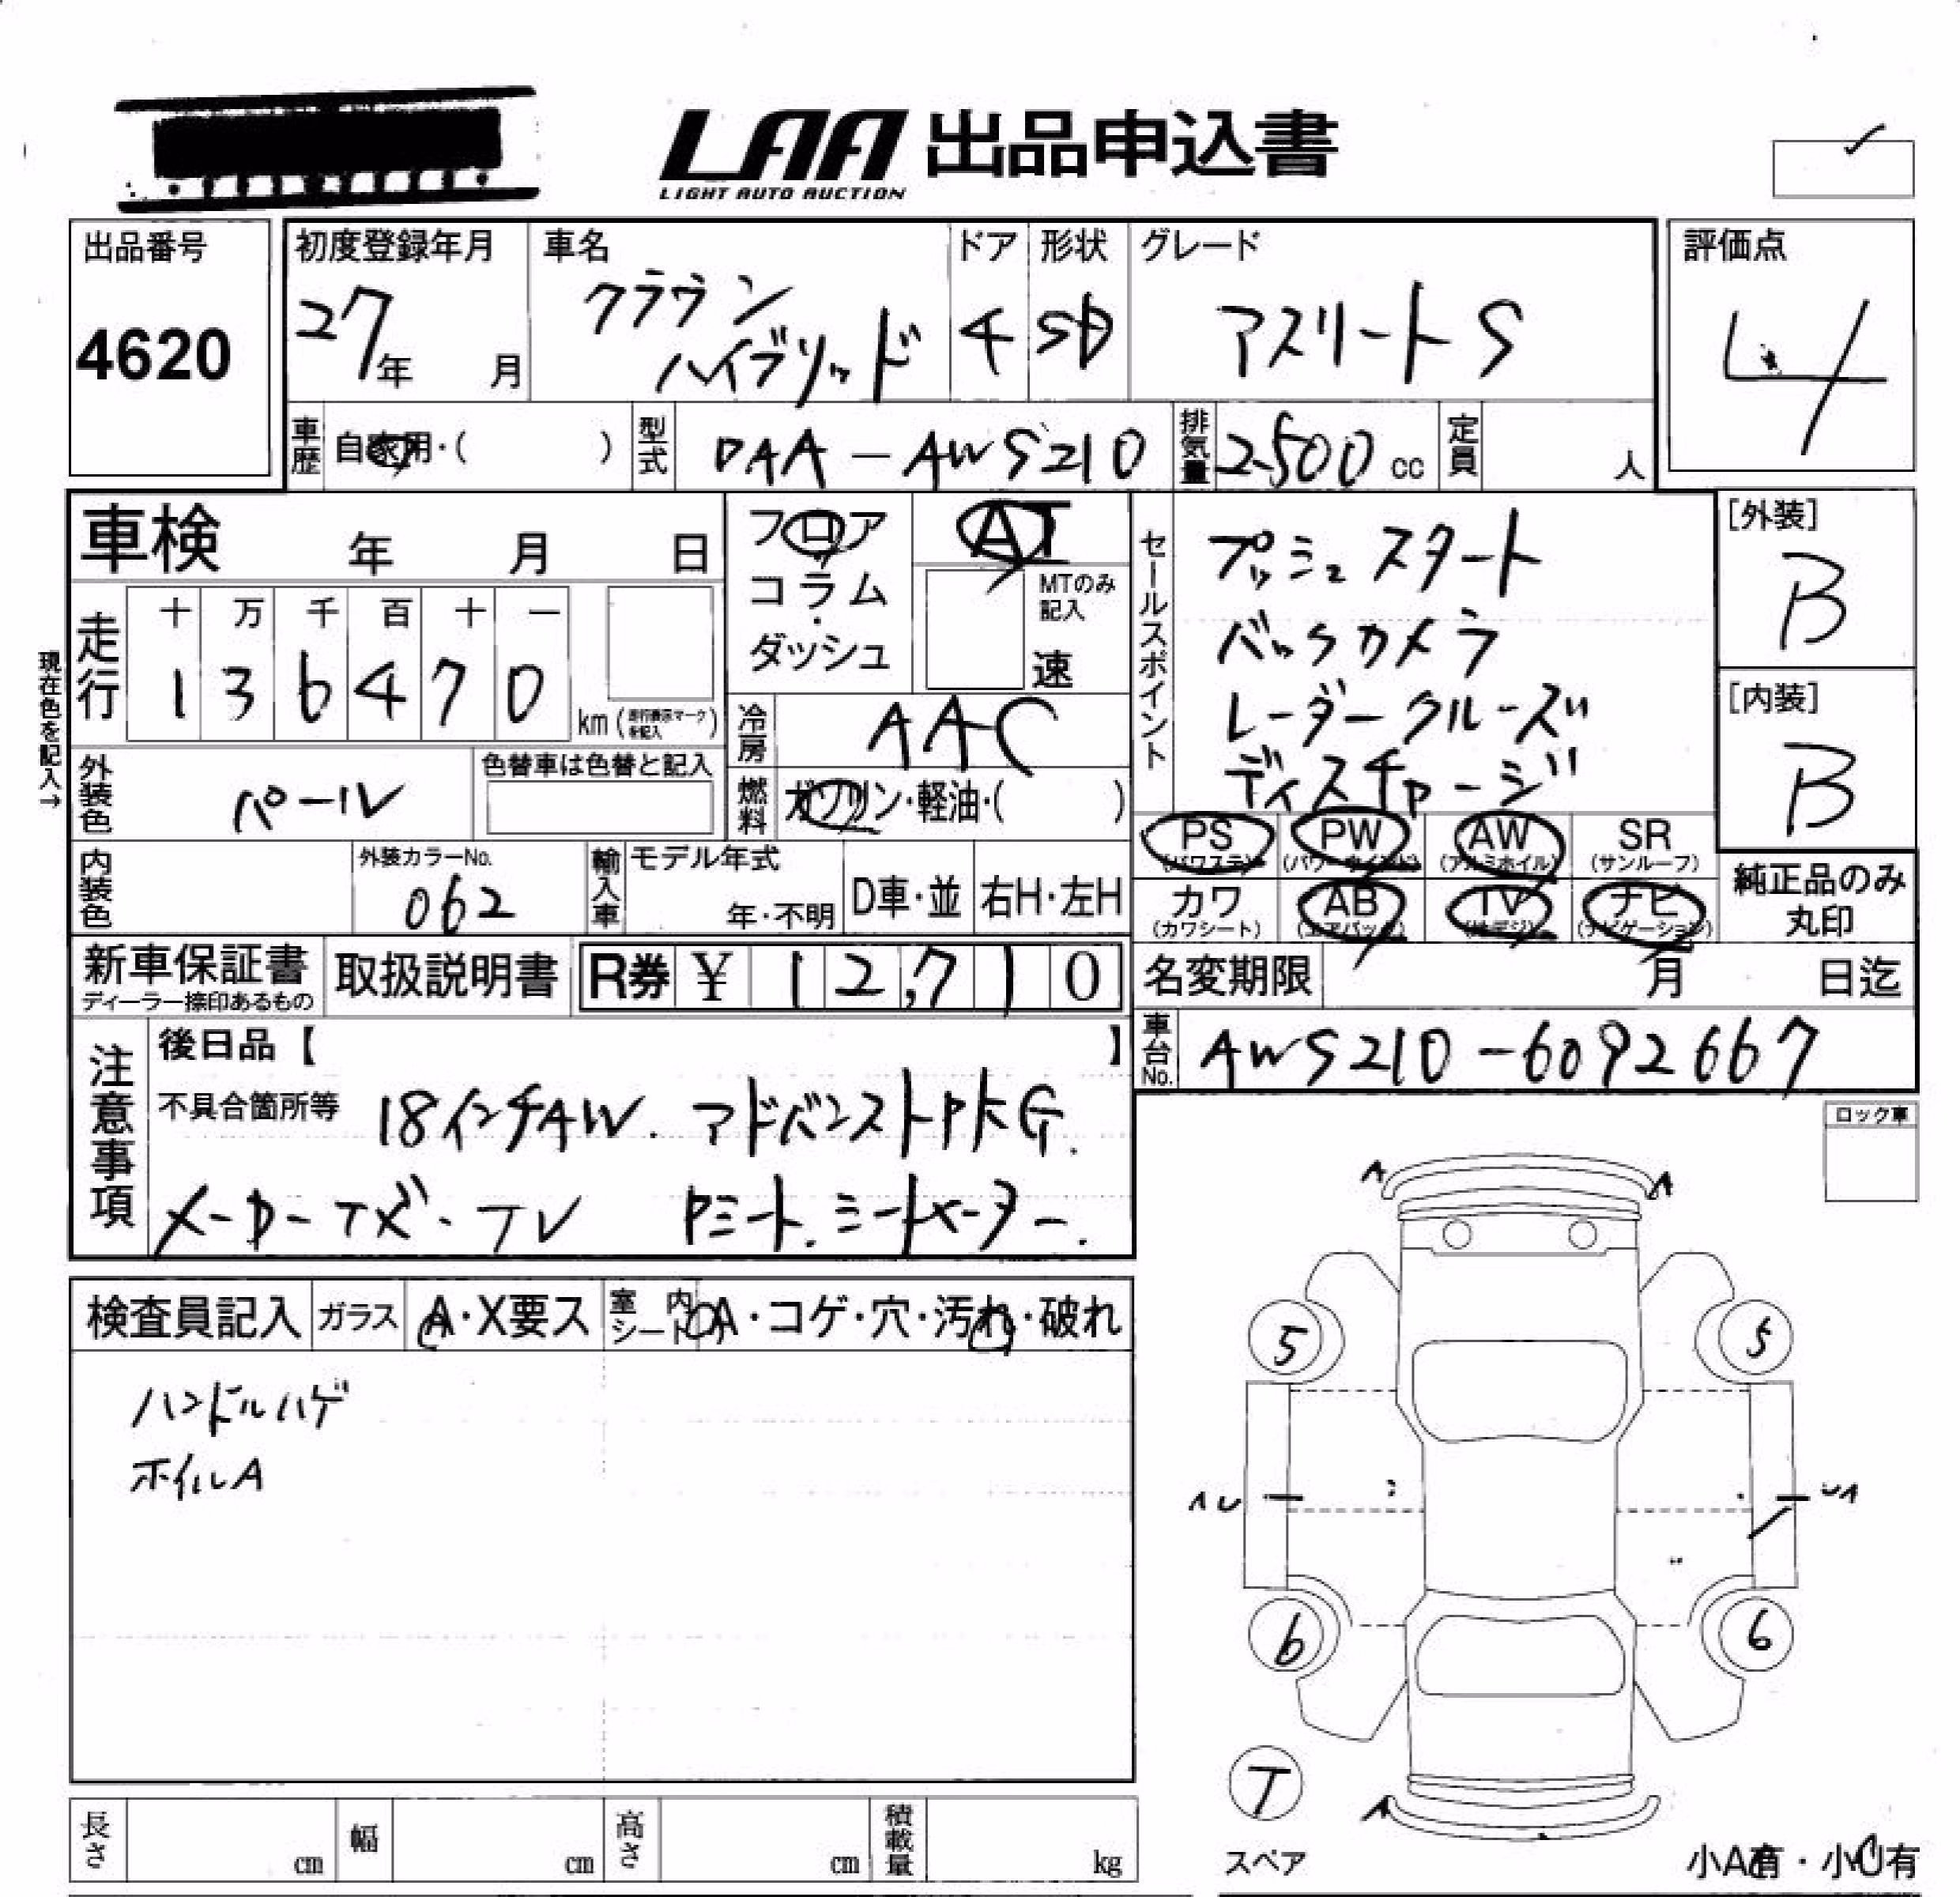 LAA 出品申込書
LIGHT AUTO AUCTION
出品番号
4620
初度登録年月
27年 月
車名
クラウン
ハイブリッド
ドア
4
形状
SD
グレード
アスリートS
評価点
4
車歴
自家用・( )
型式
DAA-AWS210
排気量
2500cc
定員
人
車検 年 月 日
走行
十 万 千 百 十 一
1 3 6 4 7 0 km
現在色を記入→
フロア
コラム
ダッシュ
AT
MTのみ
記入
速
冷房
AAC
燃料
ガソリン・軽油・( )
セールスポイント
プッシュスタート
バックカメラ
レーダークルーズ
ディスチャージ
[外装]
B
[内装]
B
外装色
パール
色替車は色替と記入
内装色
外装カラーNo.
062
輸入車
モデル年式
年・不明
D車・並
右H・左H
PS
(パワステ)
PW
(パワーウインド)
AW
(アルミホイル)
SR
(サンルーフ)
カワ
(カワシート)
AB
(エアバック)
TV
(地デジ)
ナビ
(ナビゲーション)
純正品のみ
丸印
新車保証書
ディーラー捺印あるもの
取扱説明書
R券 ¥ 12,710
名変期限 月 日迄
車台No.
AWS210-6092667
注意事項
後日品【 】
不具合箇所等
18インチAW. アドバンストPKG.
TV Pミート. シートヒーター.
ロック車
検査員記入
ガラス
A・X要ス
室内
シート
A・コゲ・穴・汚れ・破れ
ハンドルハゲ
ホイルA
A A
5 5
A
6 6
T
スペア
A
長さ cm
幅 cm
高さ cm
積載量 kg
小A有・小U有